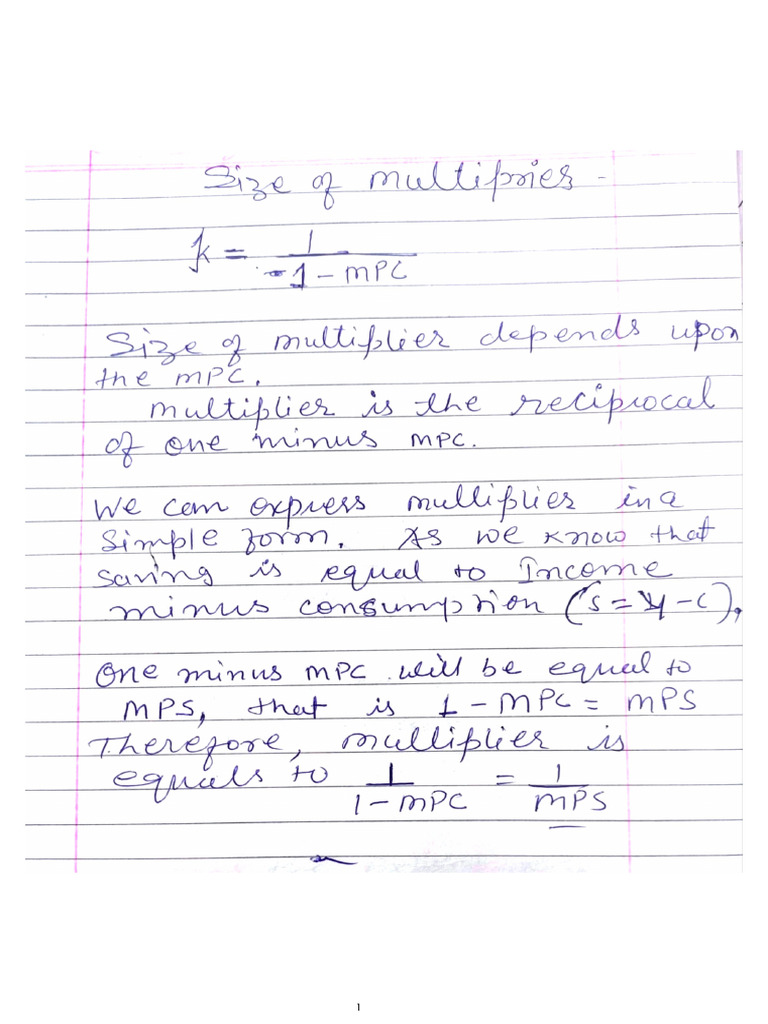 Size of multiplier -
k = 1 / 1 - MPC
Size of multiplier depends upon
the MPC.
Multiplier is the reciprocal
of one minus MPC.
We can express multiplier in a
simple form. As we know that
saving is equal to Income
minus consumption (S = Y - C),
One minus MPC will be equal to
MPS, that is 1 - MPC = MPS
Therefore, multiplier is
equals to 1 / 1 - MPC = 1 / MPS
1